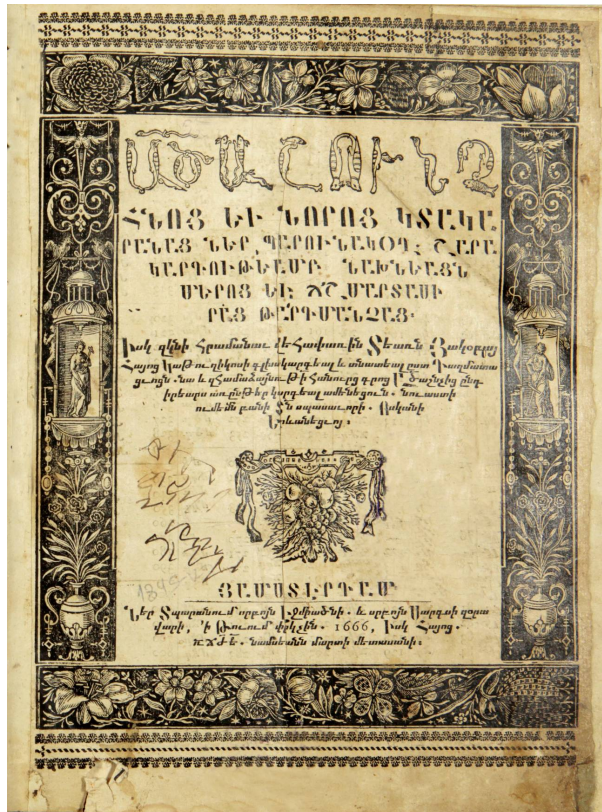 ԱԾԱՇՈՒՆՉ
ՀՆՈՑ ԵՒ ՆՈՐՈՑ ԿՏԱԿԱ
ՐԱՆԱՑ ՆԵՐ ՊԱՐՈՒՆԱԿՕՂ՝ ՇԱՐԱ
ԿԱՐԳՈՒԹԵԱՄԲ՝ ՆԱԽՆԵԱՑՆ
ՄԵՐՈՑ ԵՒ ՃՇՄԱՐՏԱՍԻ
ՐԱՑ ԹԱՐԳՄԱՆՉԱՑ.
Իսկ զինի Հրամանաւ վեհափառին Տեառն Յակօբայ
Հայոց Կաթուղիկոսի գլխակարգեալ և տնատեալ ըստ
ցւոցն. նա և զհամաձայնութի համուրց գրոց Ածաշնչից ընդ
կարգեալ ամենեցուն. նուաստի
ումեմն բանի Տն սպասաւորի. Ոսկանի
Երևանեցւոյ։
1840
ՅԱՄՍՏԷՐԴԱՄ
Ներ Տպարանում սրբոյն Էջմիածնի. և սրբոյն Սարգսի զօրա
վարի, 'ի Թուում փրկչին. 1666, Իսկ Հայոց.
ՌՃԺԵ. Յամսեանն մարտի մետասանի։